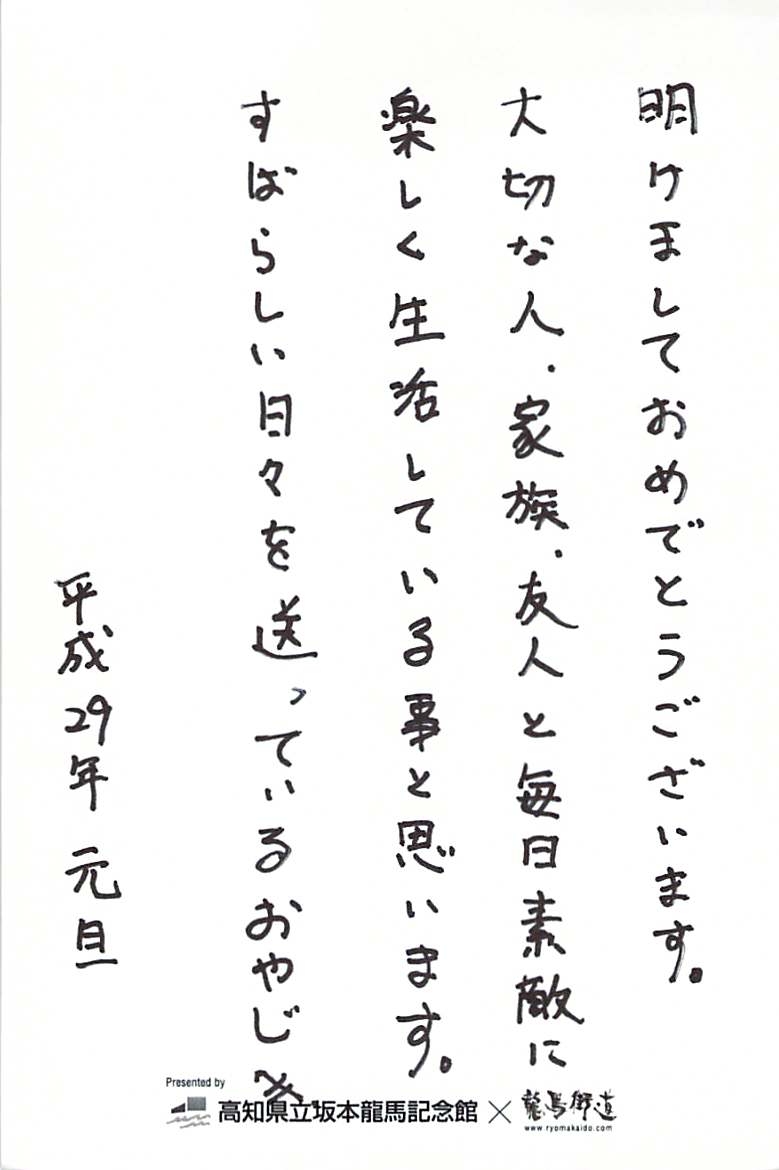 明けましておめでとうございます。
大切な人・家族・友人と毎日素敵に
楽しく生活している事と思います。
すばらしい日々を送っているおやじ
平成29年 元旦
Presented by
高知県立坂本龍馬記念館×龍馬街道
www.ryomakaido.com